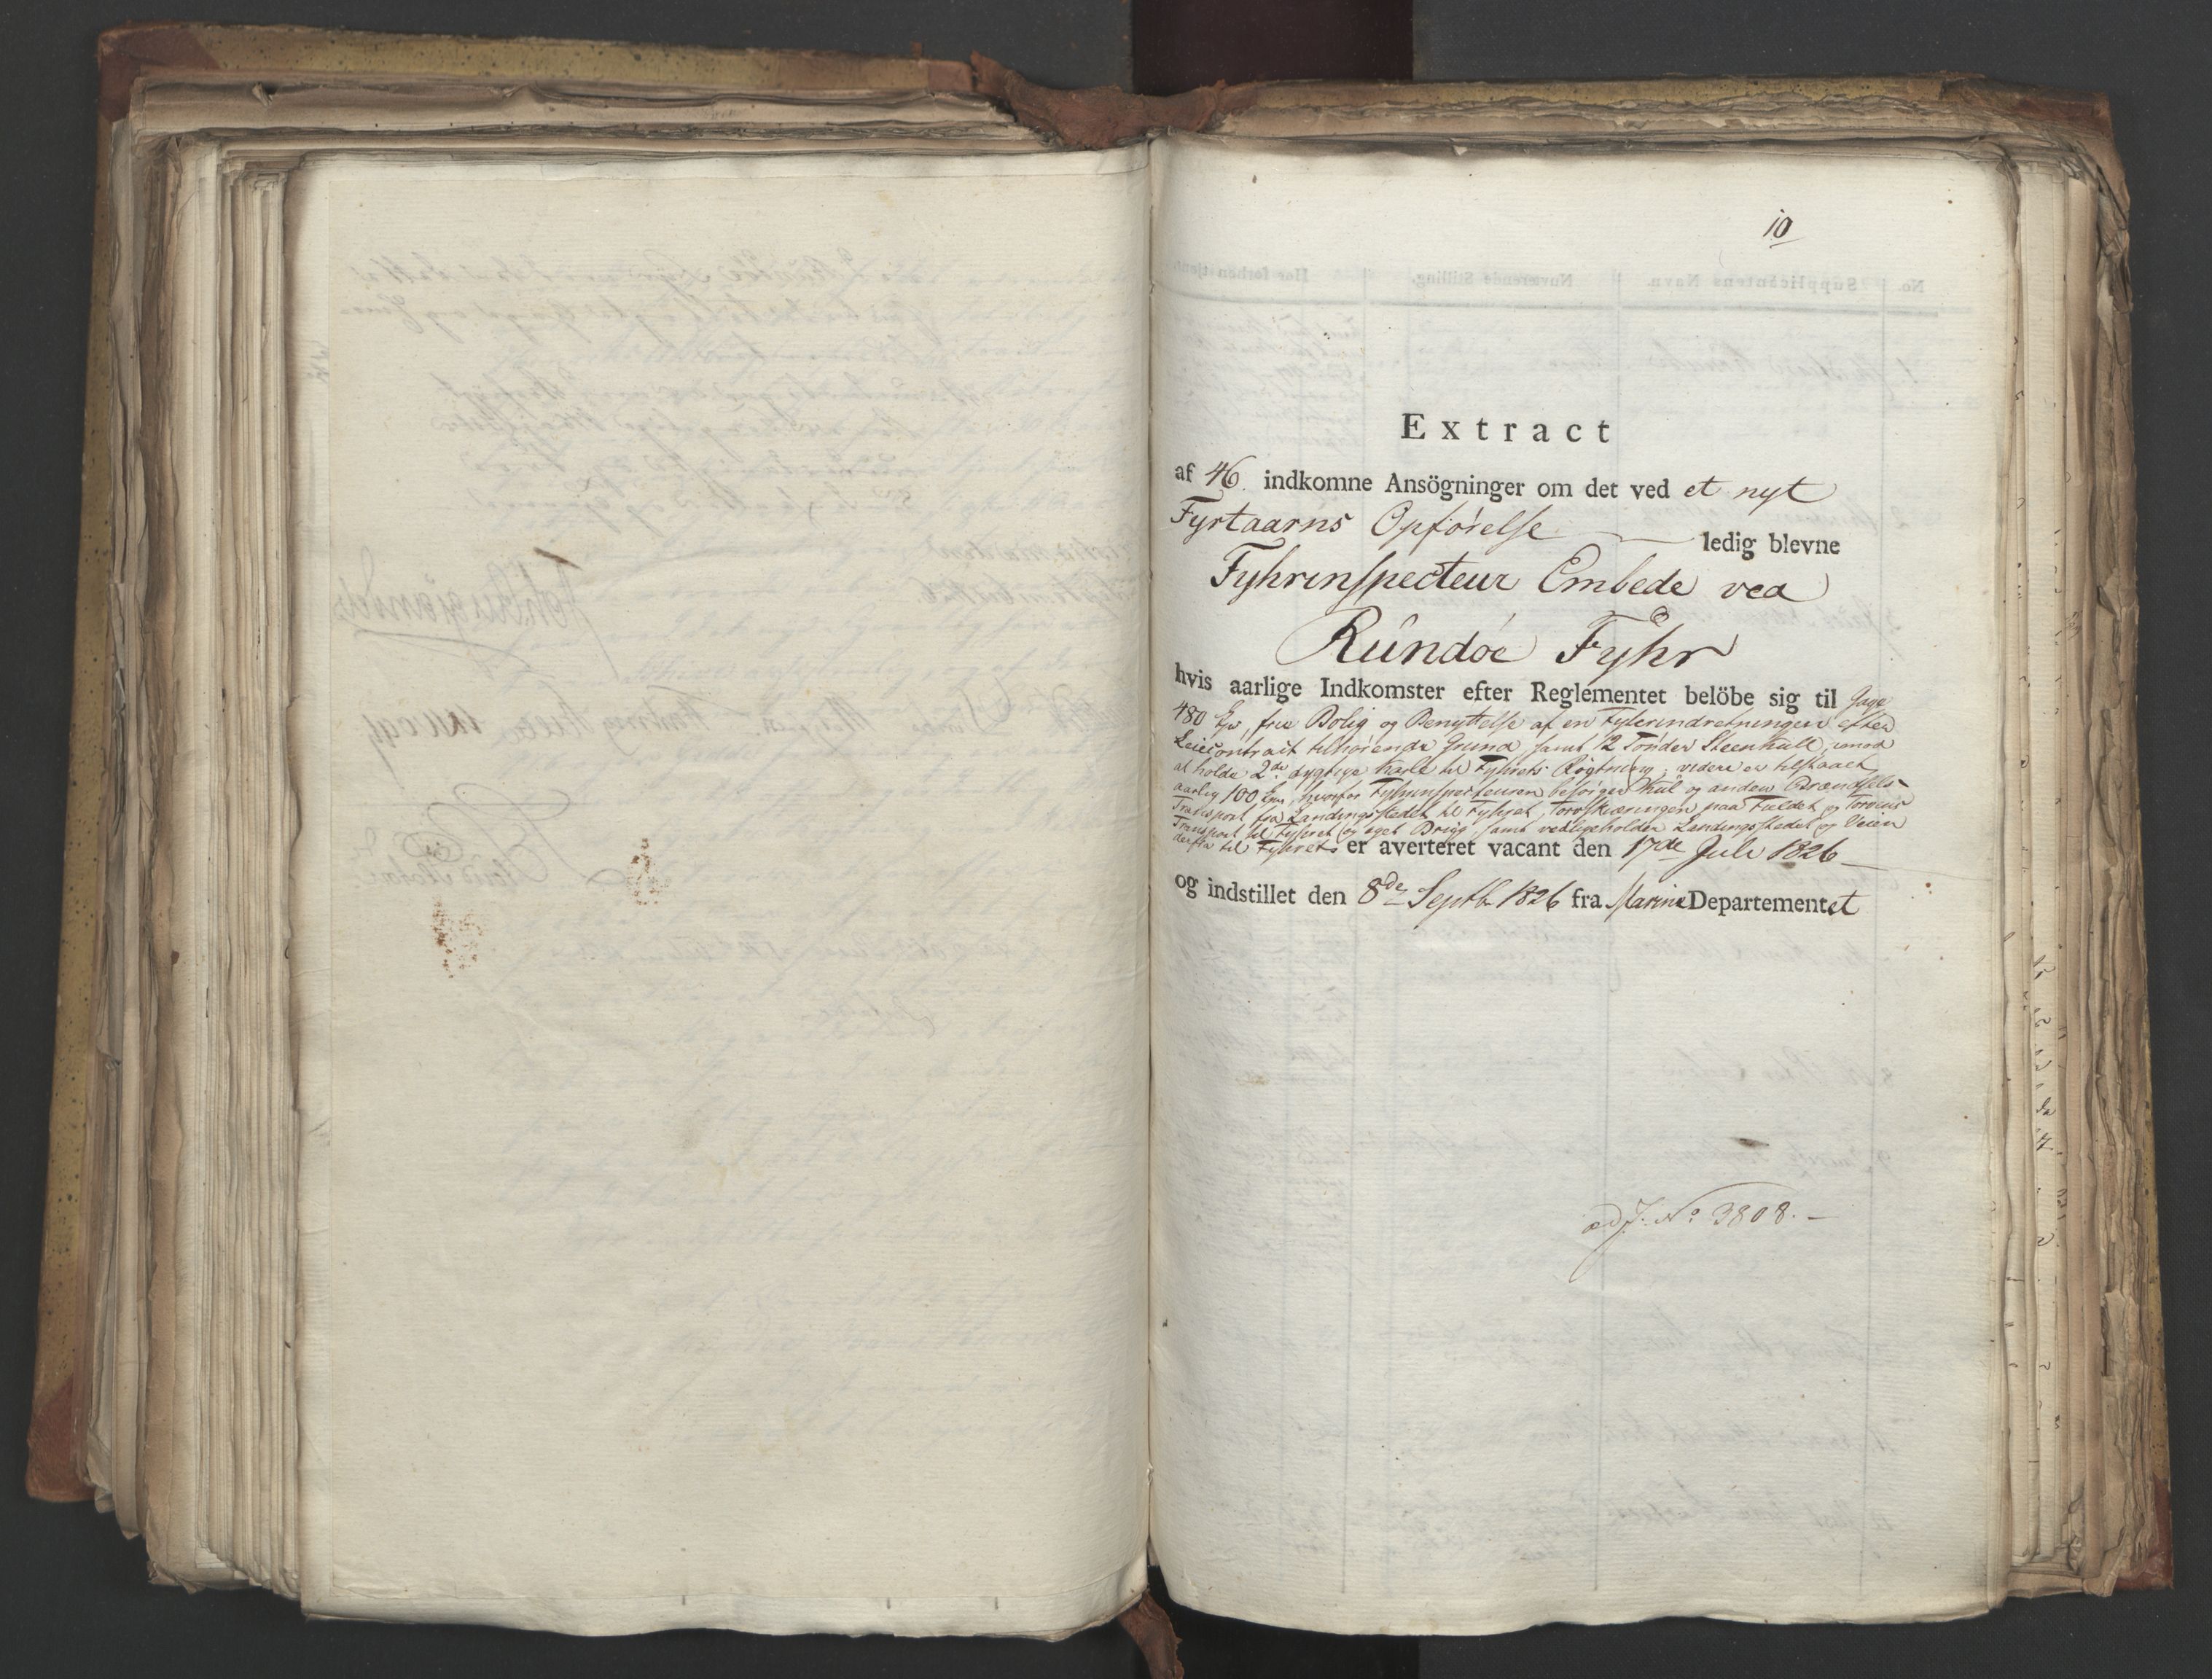 10
Extract
af 46. indkomne Ansögninger om det ved et nyt
Fyrtaarns Opförelse — ledig blevne
Fyhrinspecteur Embede ved
Rundöe Fyhr
hvis aarlige Indkomster efter Reglementet belöbe sig til Gage
480 Spd, frie Bolig og Benyttelse af en Fyhrindretningen efter
Leiecontract tilhörende Grund, samt 12 Tönder Steenkull, imod
at holde 2de dygtige Karle til Fyhrets Rögtning; videre er tilstaaet
aarlig 100 Spd, hvorfor Fyhrinspecteuren besörger Kul og anden Brændsels-
Transport fra Landingsstedet til Fyhret, Torvskæringen paa Fieldet og Torvens
Transport til Fyhret og eget Brug, samt vedligeholder Landingsstedet og Veien
derfra til Fyhret er averteret vacant den 17de Juli 1826
og indstillet den 8de Septb 1826 fra Marine Departementet
ad J. No 3808. —